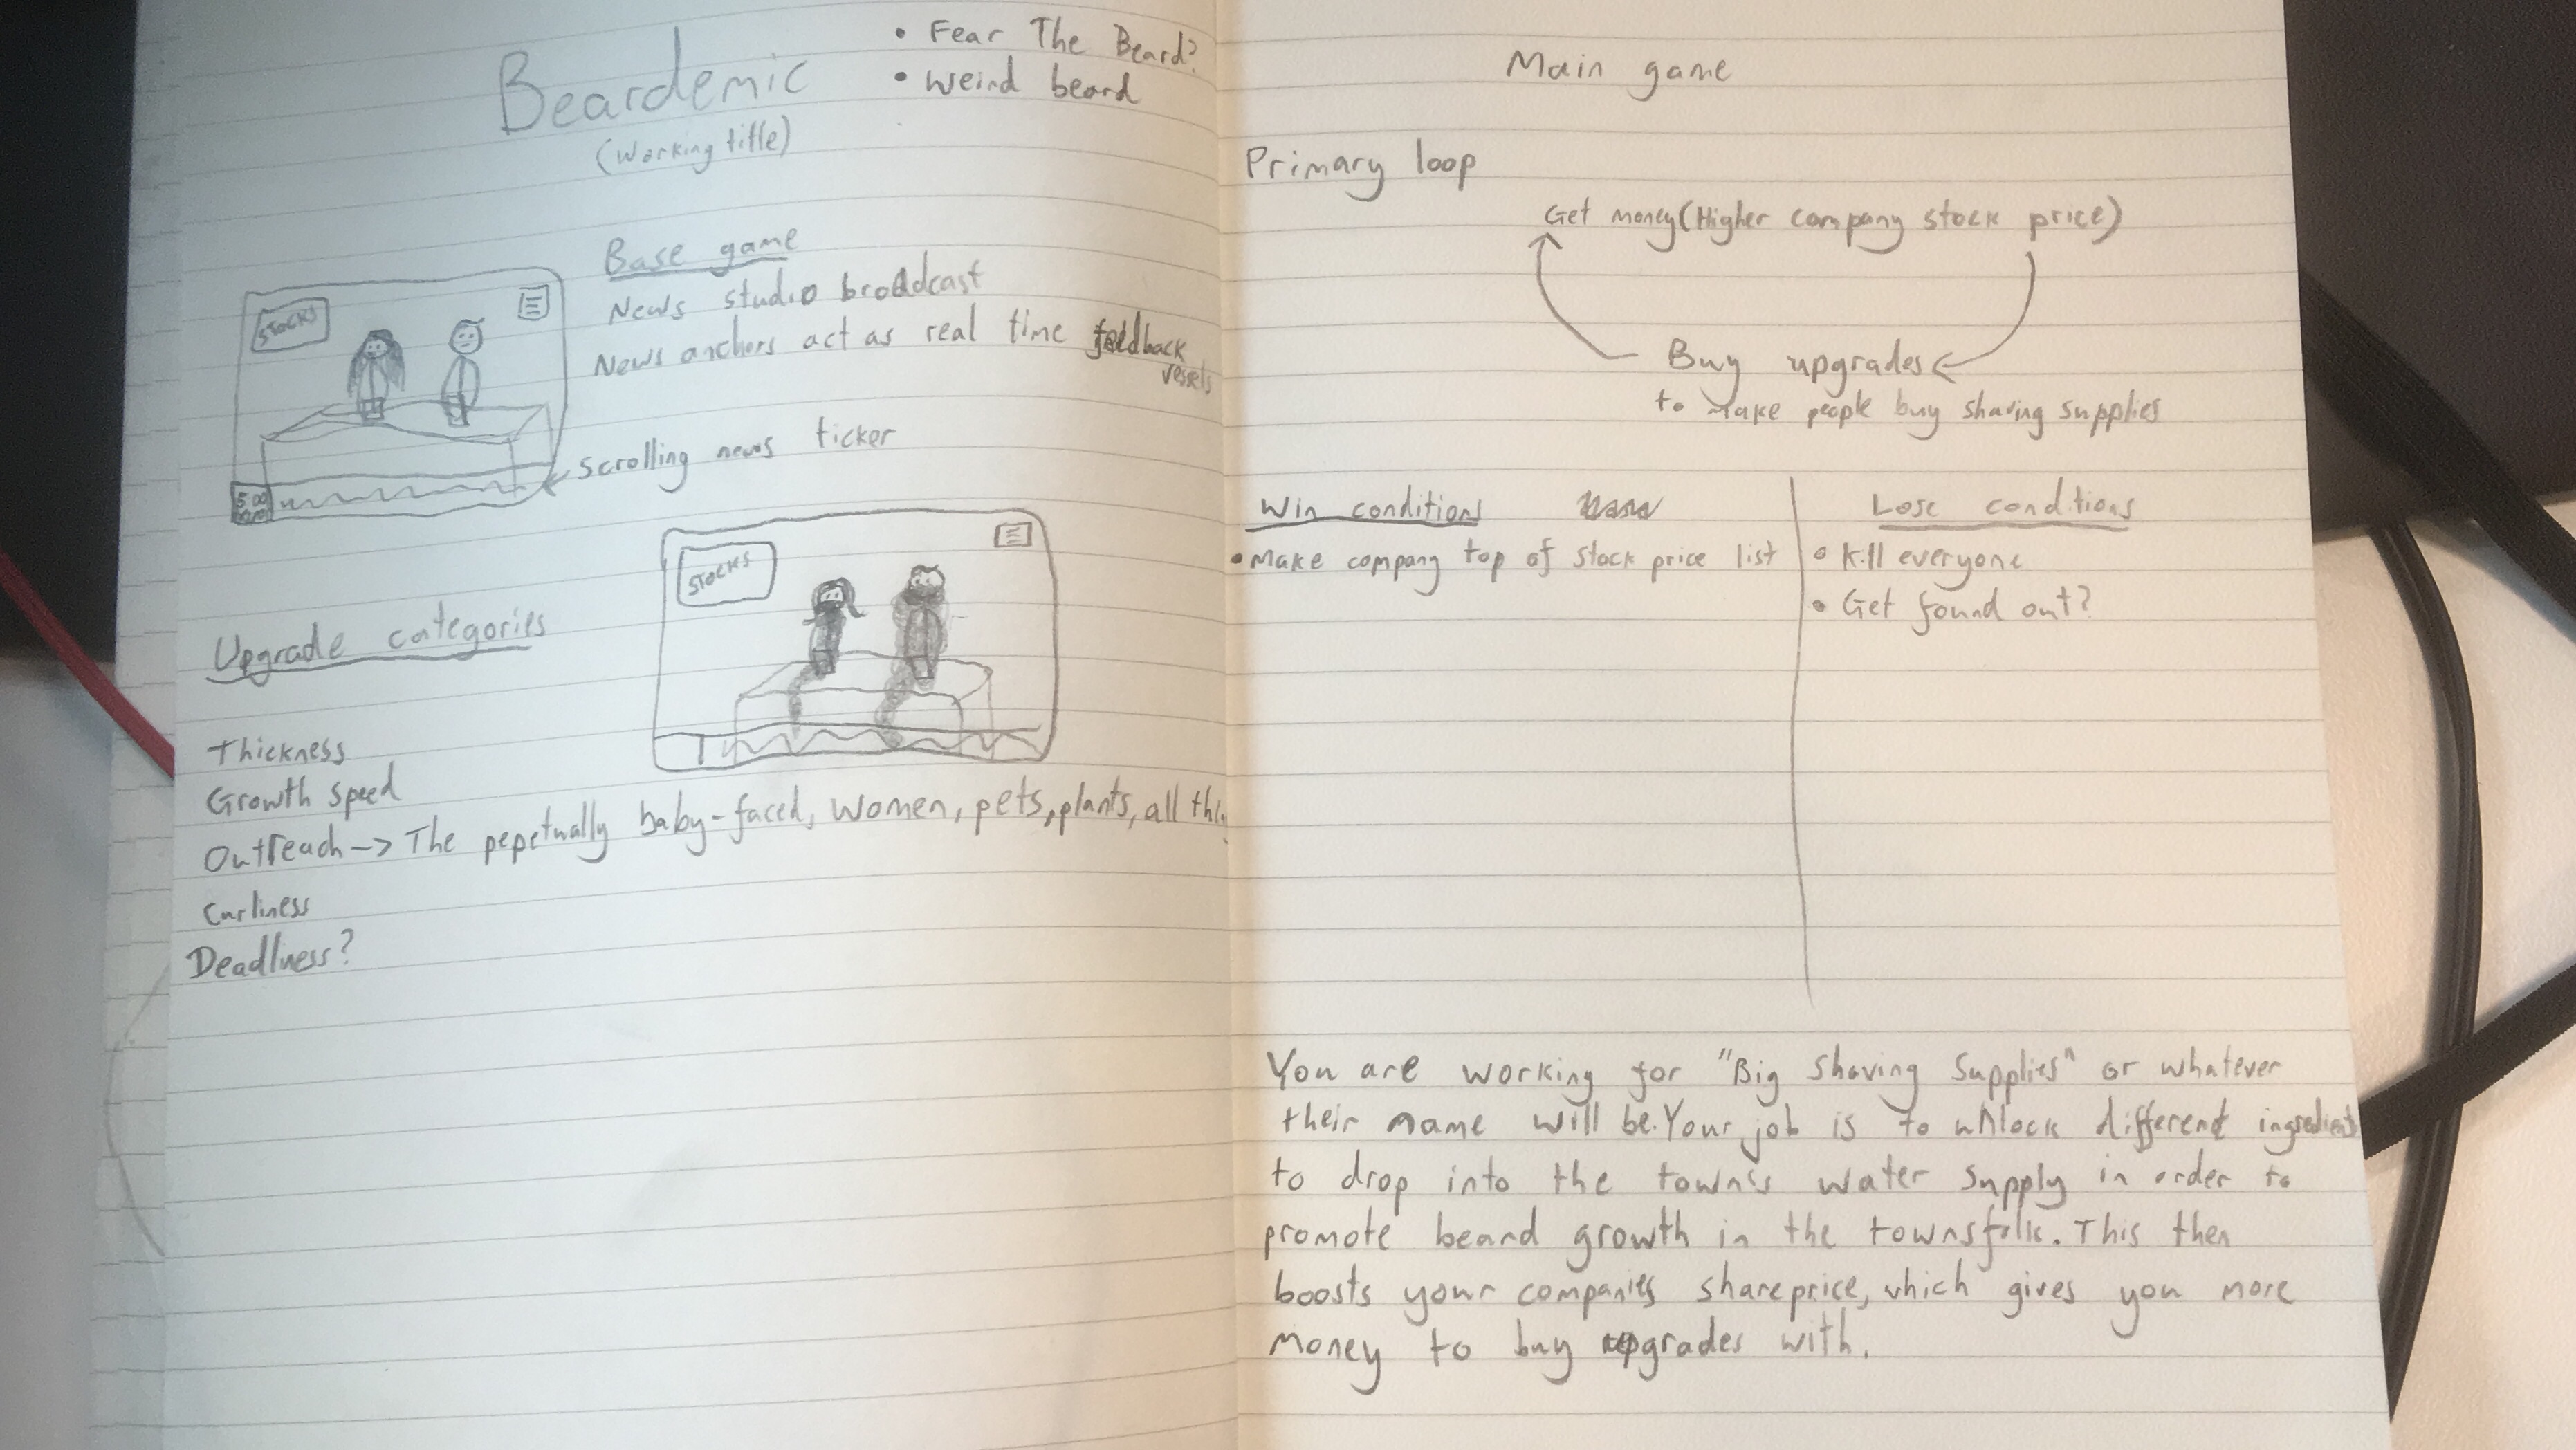 Beardemic
(Working title)
• Fear The Beard?
• Weird beard
Base game
News studio broadcast
News anchors act as real time feedback
vessels
STOCKS
Scrolling news ticker
5:00
STOCKS
Upgrade categories
Thickness
Growth speed
Outreach -> The pepetually baby-faced, women, pets, plants, all
Curliness
Deadliness?
Main game
Primary loop
Get money (Higher company stock price)
Buy upgrades
to make people buy shaving supplies
Win conditions
• Make company top of stock price list
Lose conditions
• Kill everyone
• Get found out?
You are working for "Big Shaving Supplies" or whatever
their name will be. Your job is to unlock different ingredients
to drop into the town's water supply in order to
promote beard growth in the townsfolk. This then
boosts your companies shareprice, which gives you more
money to buy upgrades with.